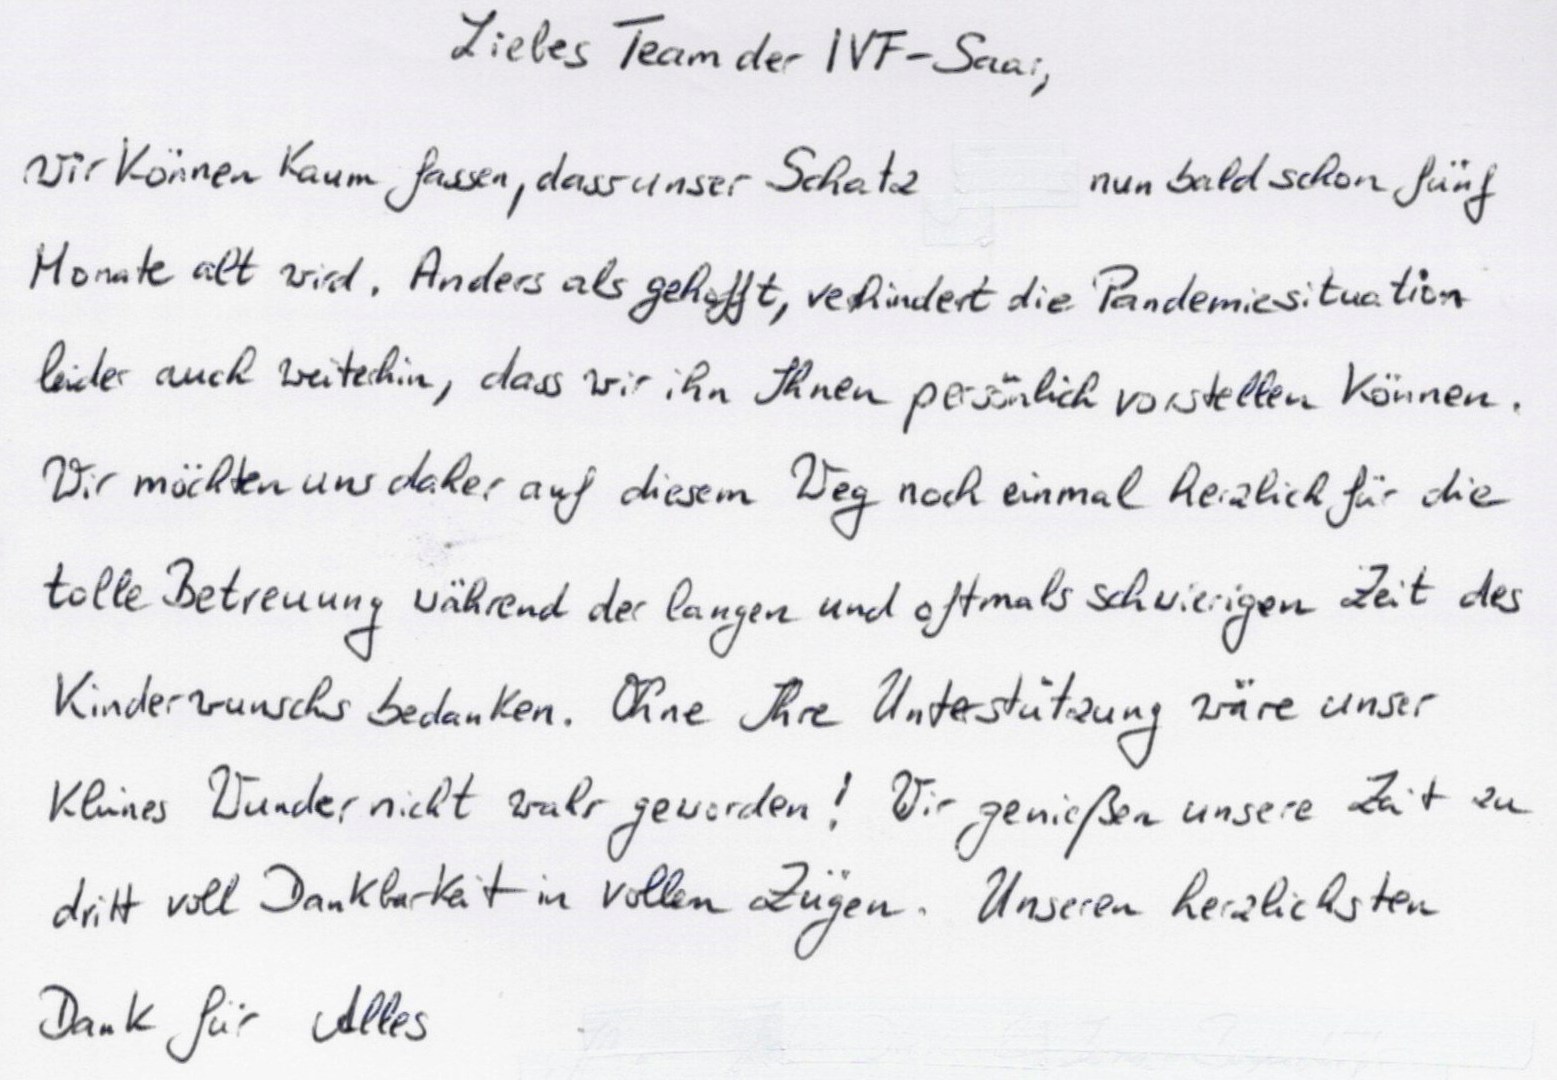 Liebes Team der IVF-Saar,
wir können kaum fassen, dass unser Schatz nun bald schon fünf
Monate alt wird. Anders als gehofft, verhindert die Pandemiesituation
leider auch weiterhin, dass wir ihn Ihnen persönlich vorstellen können.
Wir möchten uns daher auf diesem Weg noch einmal herzlich für die
tolle Betreuung während der langen und oftmals schwierigen Zeit des
Kinderwunschs bedanken. Ohne Ihre Unterstützung wäre unser
kleines Wunder nicht wahr geworden! Wir genießen unsere Zeit zu
dritt voll Dankbarkeit in vollen Zügen. Unseren herzlichsten
Dank für Alles